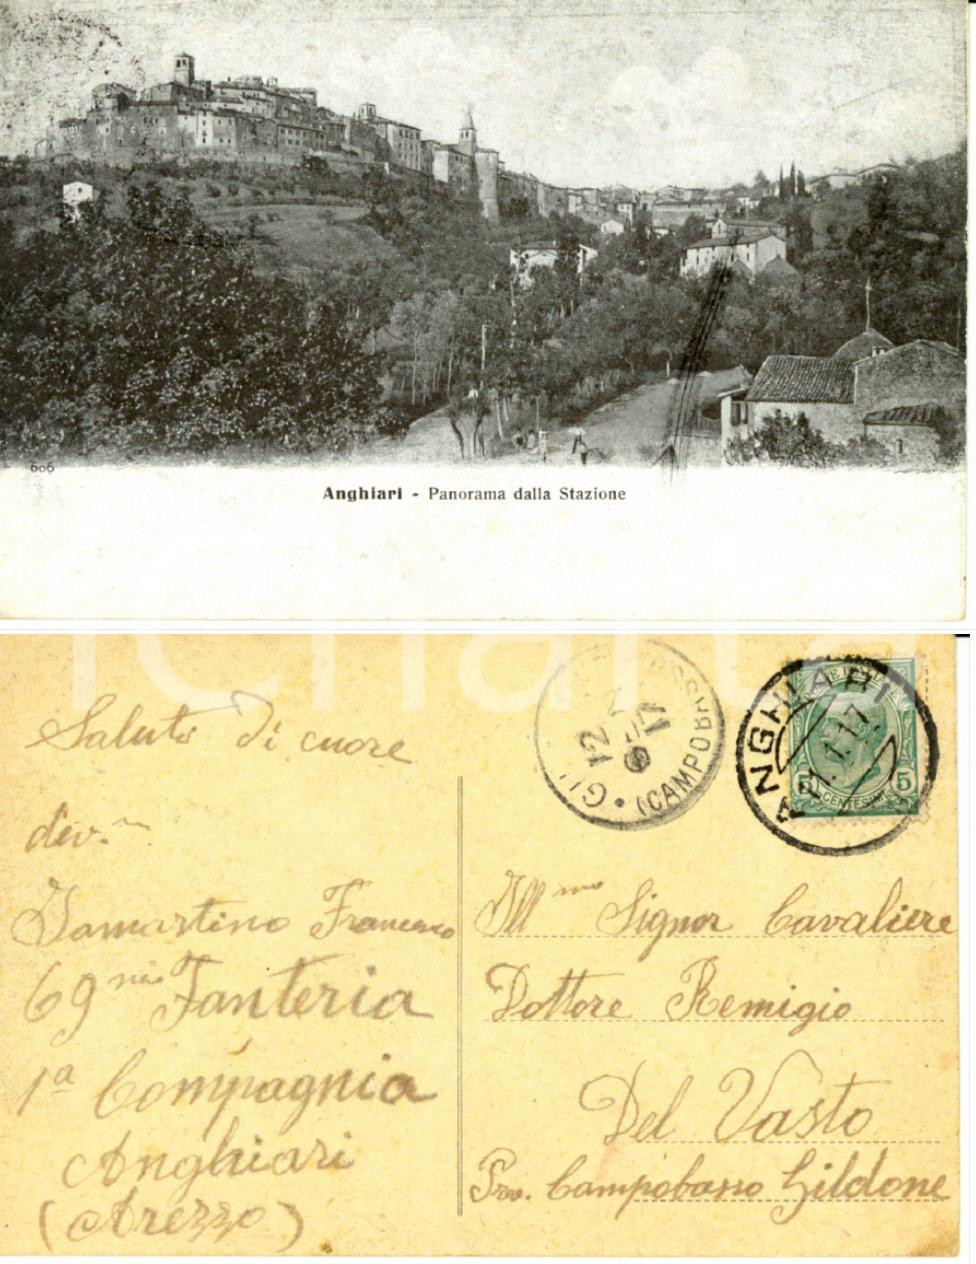 606
Anghiari - Panorama dalla Stazione
Saluti di cuore
dev.
Francesco
69 Fanteria
1ª Compagnia
Anghiari
(Arezzo)
(CAMPOBASSO)
12
17
ANGHIARI
21.1.17
5 CENTESIMI 5
Ill.mo Signor Cavaliere
Dottore Remigio
Del Vasto
Prv. Campobasso Gildone